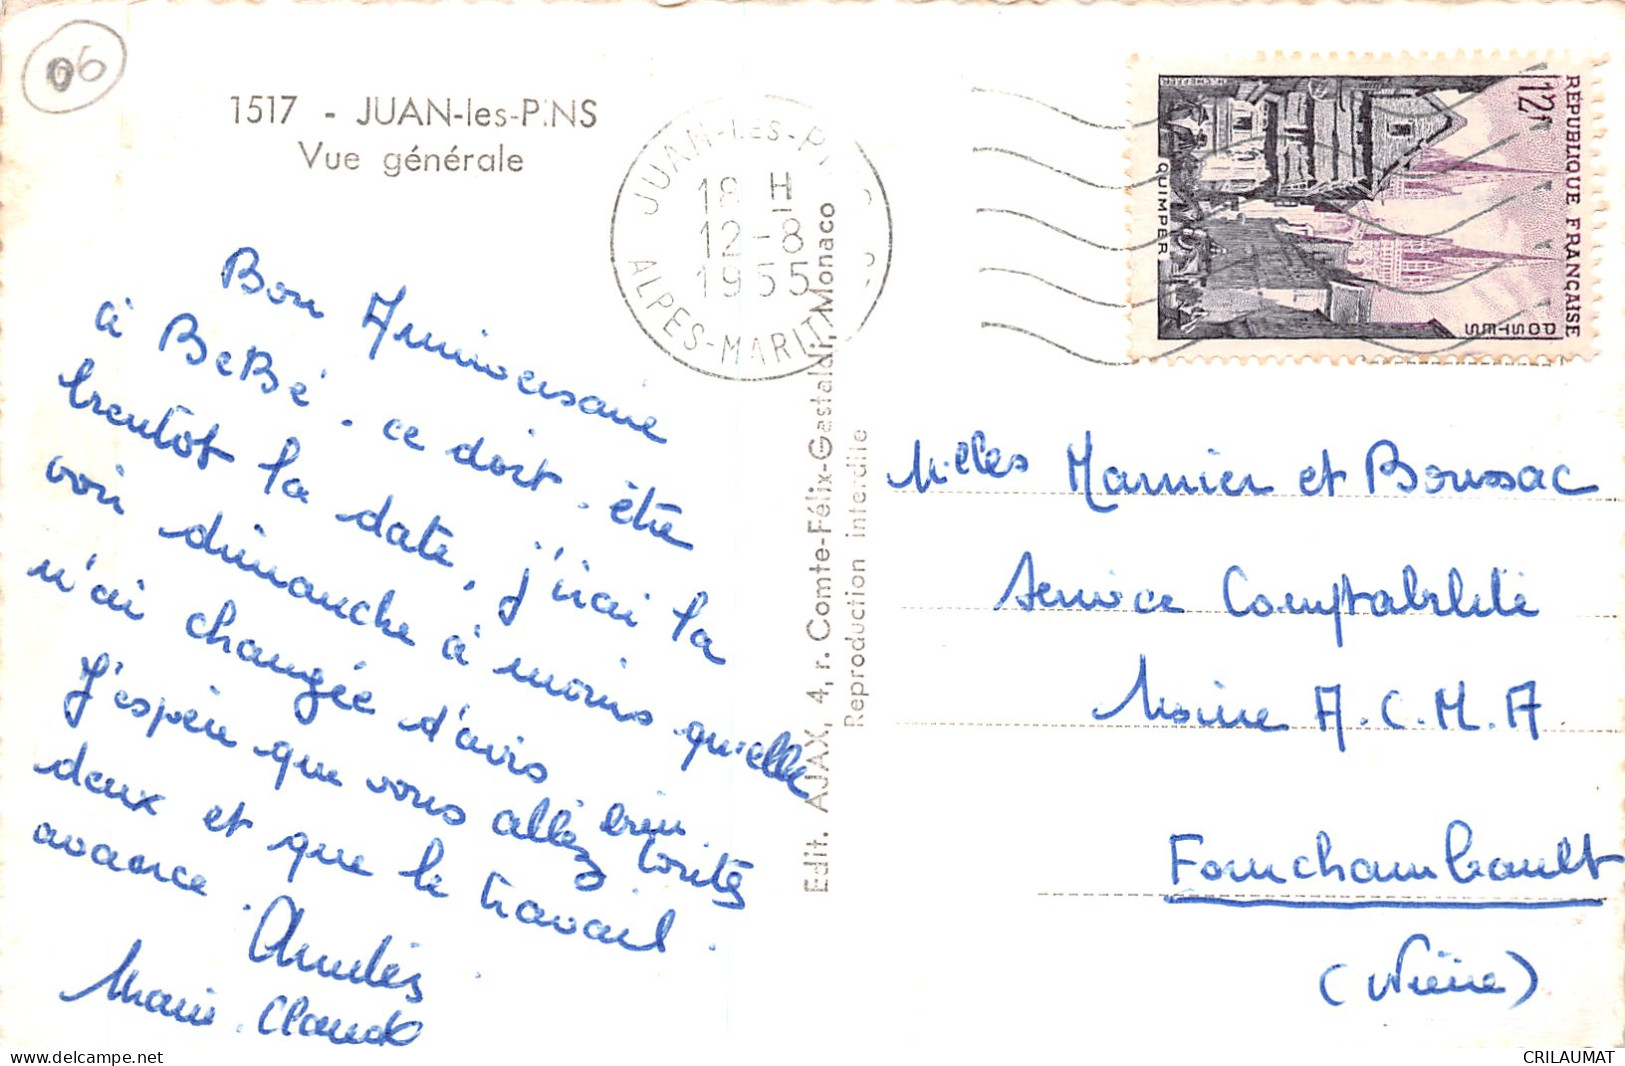 06
1517 - JUAN-les-PINS
Vue générale
JUAN-LES-PINS
18 H
12-8
1955
ALPES-MARITIMES
RÉPUBLIQUE FRANÇAISE
12F
POSTES
QUIMPER
Bon Anniversaire
à BeBé. ce doit être
bientôt la date, j'irai la
voir dimanche à moins qu'elle
n'ai changée d'avis
J'espère que vous allèz bien toutes
deux et que le travail
avance. Amitiés.
Marie-Claude
Edit. AJAX, 4, r. Comte-Félix-Gastaldi, Monaco
Reproduction interdite
Melles Marnier et Boussac
Service Comptabilité
Usine A.C.M.A
Fourchambault
(Nièvre)
CRILAUMAT